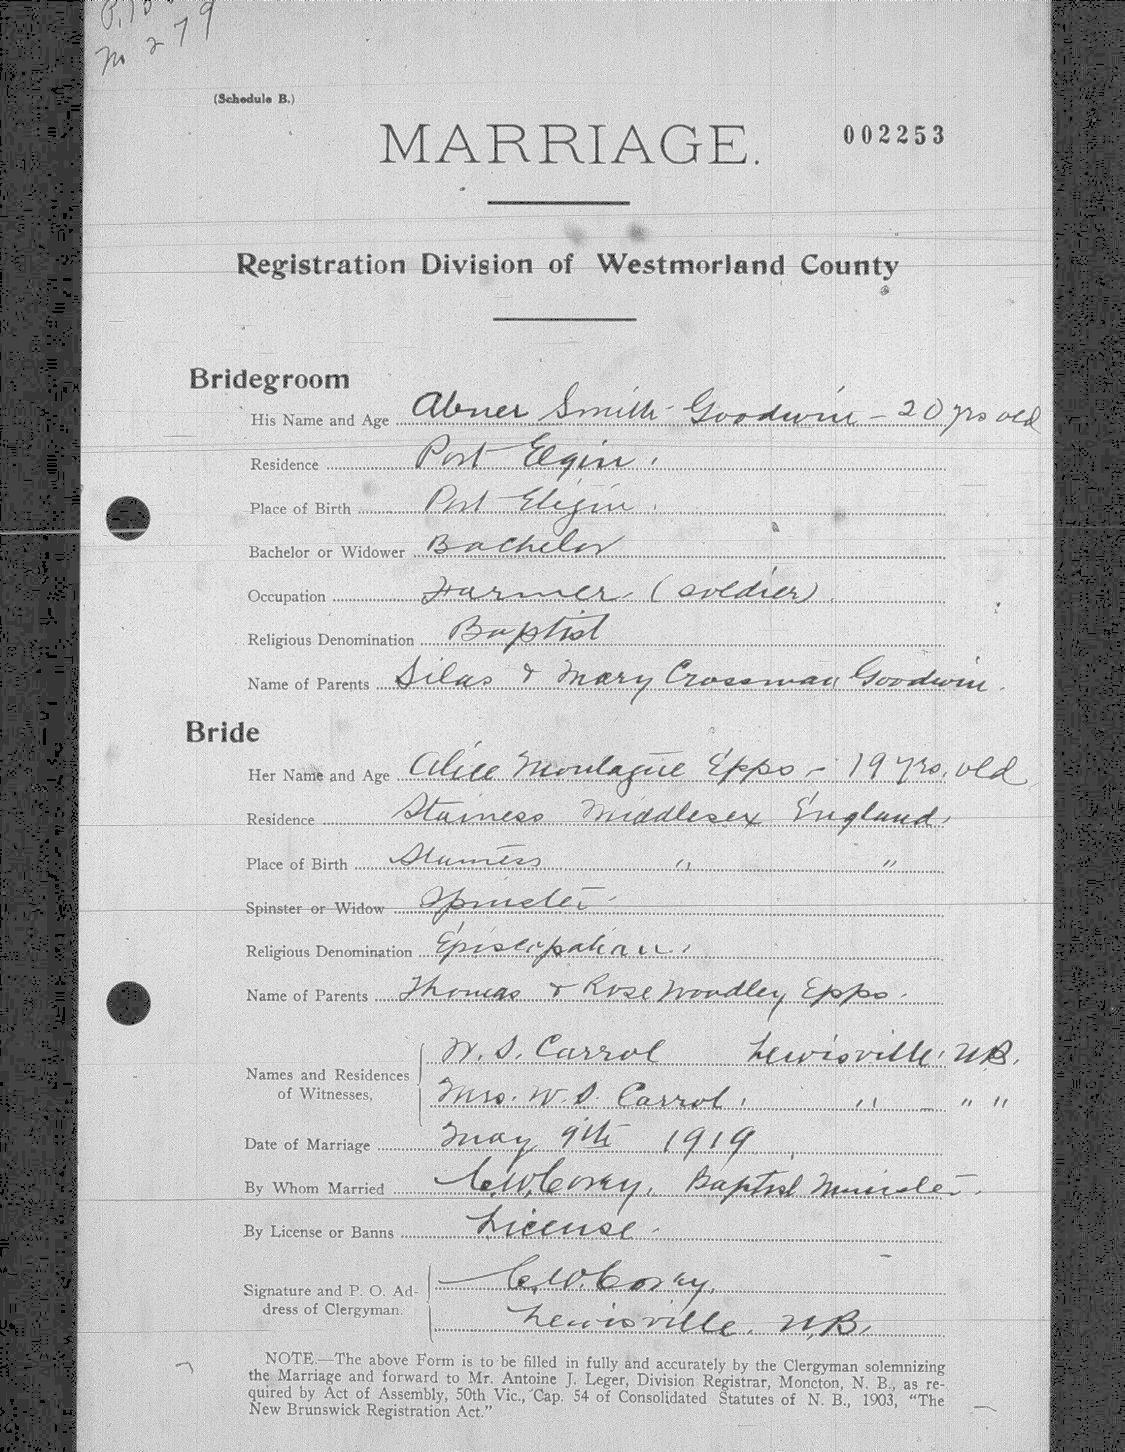 No 279
(Schedule B.)
MARRIAGE.
002253
Registration Division of Westmorland County
Bridegroom
His Name and Age Abner Smith Goodwin - 20 yrs old
Residence Port Elgin.
Place of Birth Port Elgin.
Bachelor or Widower Bachelor
Occupation Farmer (soldier)
Religious Denomination Baptist
Name of Parents Silas & Mary Crossman Goodwin.
Bride
Her Name and Age Alice Montague Epps - 19 yrs. old
Residence Stainess Middlesex England.
Place of Birth Stainess " "
Spinster or Widow Spinster
Religious Denomination Episcopalian.
Name of Parents Thomas & Rose Woodley Epps.
Names and Residences of Witnesses, W. S. Carrol Lewisville, N.B.
Mrs. W. S. Carrol, " " "
Date of Marriage May 9th 1919
By Whom Married C.W. Corey, Baptist Minister.
By License or Banns License
Signature and P. O. Ad- C.W. Corey,
dress of Clergyman. Lewisville, N.B.
NOTE.—The above Form is to be filled in fully and accurately by the Clergyman solemnizing
the Marriage and forward to Mr. Antoine J. Leger, Division Registrar, Moncton, N. B., as re-
quired by Act of Assembly, 50th Vic., Cap. 54 of Consolidated Statutes of N. B., 1903, "The
New Brunswick Registration Act."